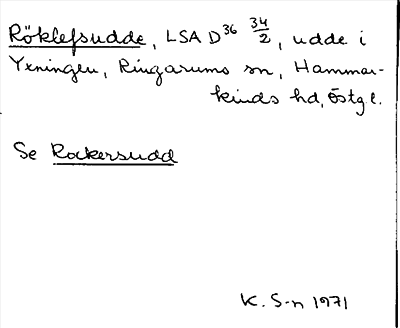 Röklefsudde, LSA D36 34/2, udde i
Yxningen, Ringarums sn, Hammar-
kinds hd, Östgl.
Se Rockersudd
K. S-n 1971